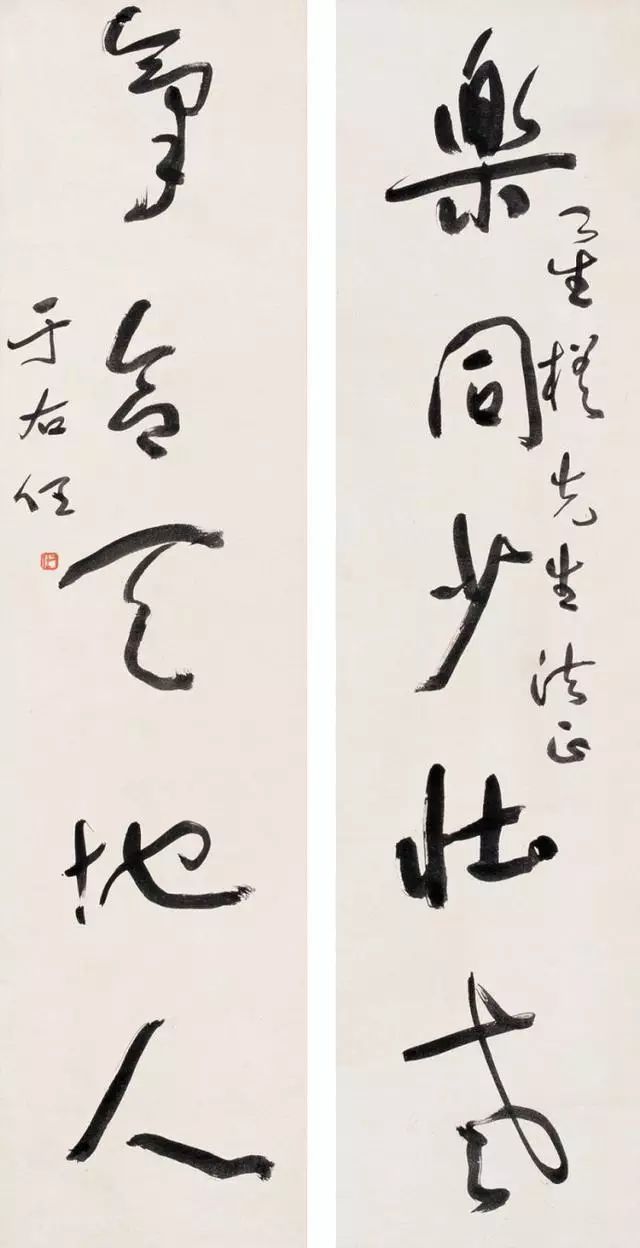 樂同少壯老
星先生法正
氣合天地人
于右任